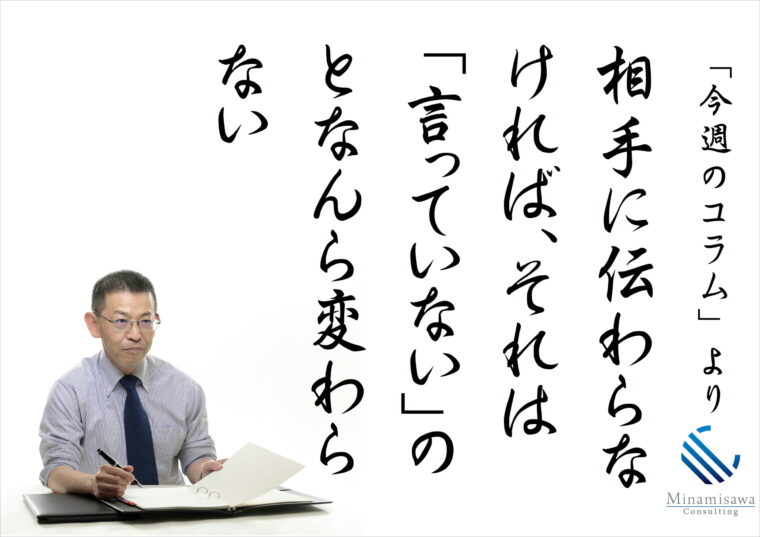 「今週のコラム」より
相手に伝わらな
ければ、それは
「言っていない」の
となんら変わら
ない
Minamisawa
Consulting